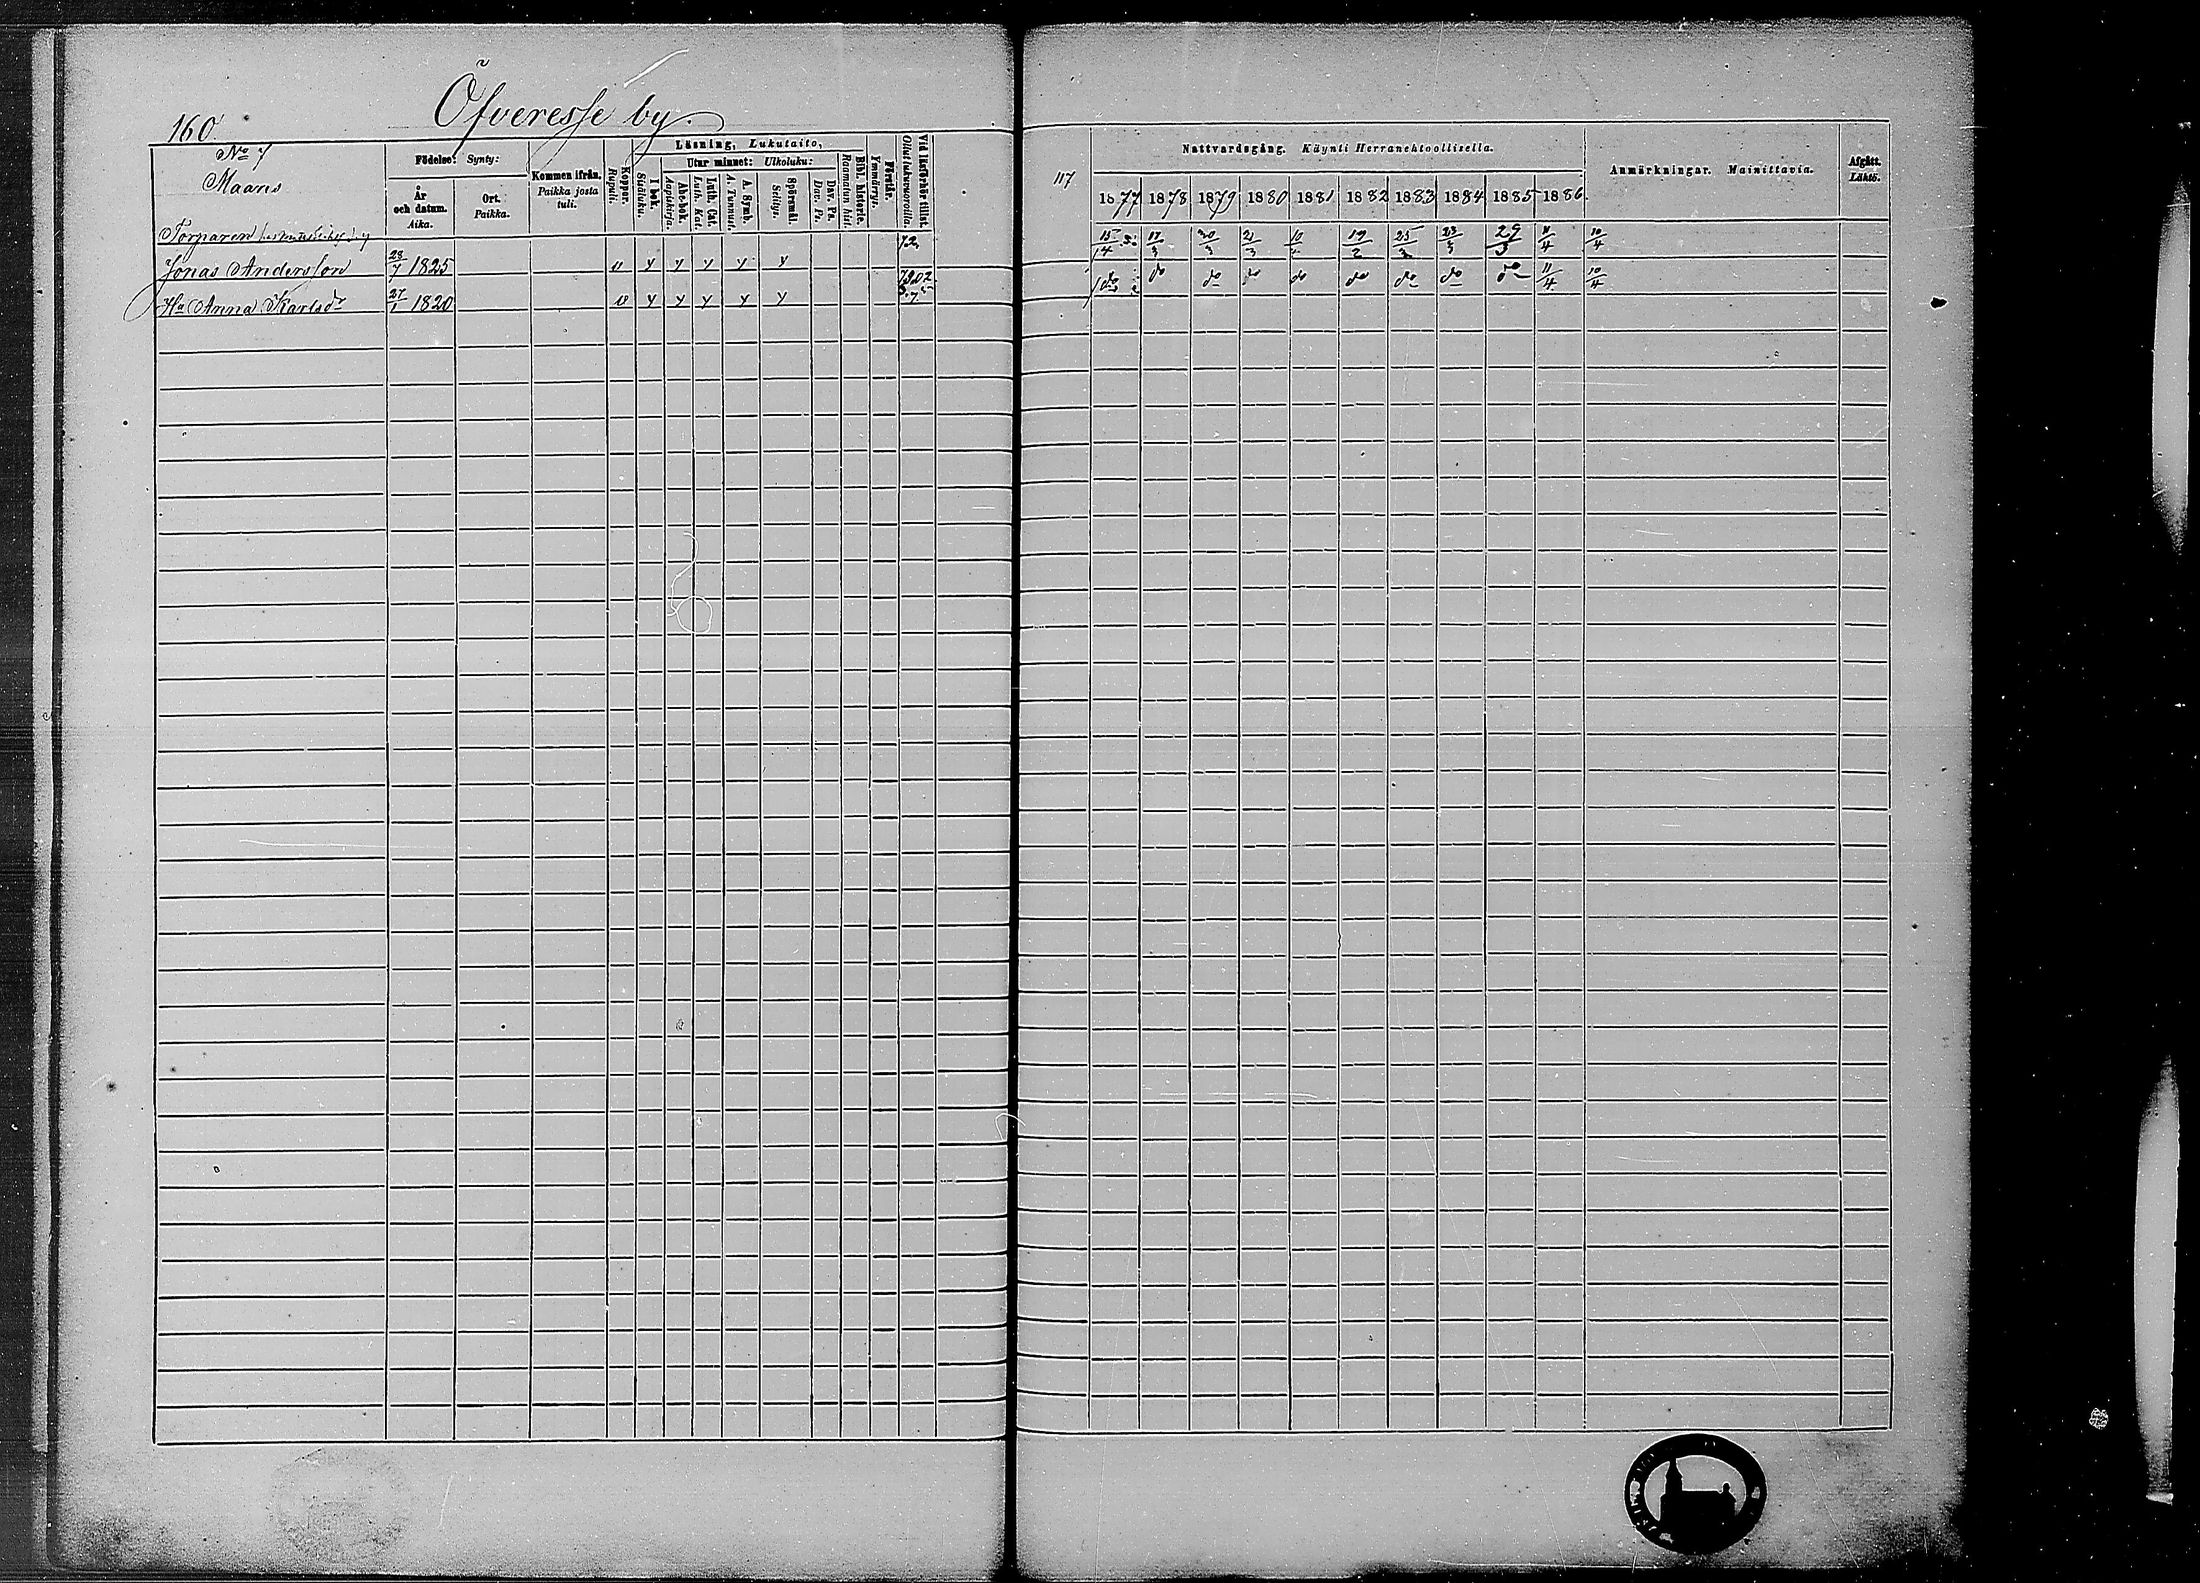 160.
Öfveresse by.
No 7
Maans
Födelse: Synty:
År och datum. Aika.
Ort. Paikka.
Kommen ifrån. Paikka josta tuli.
Koppor. Rupuli.
Läsning, Lukutaito,
I bok. Sisäluku.
Utur minnet: Ulkoluku:
Abc-bok. Aapiskirja.
Luth. Cat. Luth. Kat.
A. Symb. A. Tunnus.
Spörsmål. Selitys.
Dav. Ps. Dav. Ps.
Bibl. historie. Raamatun hist.
Förstår. Ymmärrys.
Vid läsförhör tillst. Ollut lukuvuoroilla.
Torparen
Jonas Andersson 28/7 1825 v y y y y y 72
Hu Anna Karlsdr 27/1 1820 v y y y y y
117
Nattvardsgång. Käynti Herranehtoollisella.
1877 1878 1879 1880 1881 1882 1883 1884 1885 1886.
Anmärkningar. Mainittavia.
Afgått. Lähtö.
15/4 17/3 30/3 21/3 19/2 25/3 23/3 29/3 11/4 10/4
do do do do do do do do do 11/4 10/4